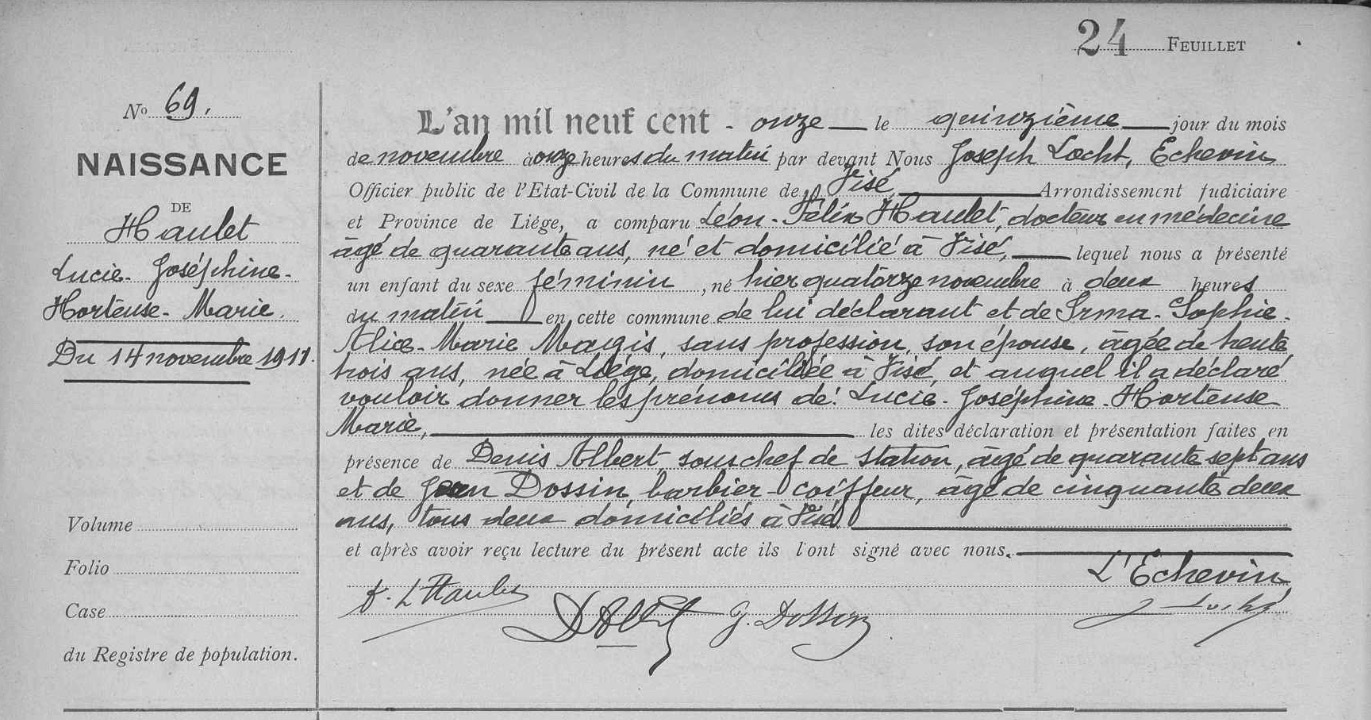 24 FEUILLET
No 69.
NAISSANCE
DE
Haulet
Lucie - Joséphine -
Hortense - Marie.
Du 14 novembre 1911.
Volume
Folio
Case
du Registre de population.
L'an mil neuf cent - onze le quinzième jour du mois
de novembre à onze heures du matin par devant Nous Joseph Locht, Echevin
Officier public de l'Etat-Civil de la Commune de Visé, Arrondissement judiciaire
et Province de Liége, a comparu Léon - Félix Haulet, docteur en médecine
âgé de quarante ans, né et domicilié à Visé, lequel nous a présenté
un enfant du sexe féminin, né hier quatorze novembre à deux heures
du matin en cette commune de lui déclarant et de Irma - Sophie -
Alice - Marie Magis, sans profession, son épouse, âgée de trente
trois ans, née à Liége, domiciliée à Visé, et auquel il a déclaré
vouloir donner les prénoms de: Lucie - Joséphine - Hortense
Marie, les dites déclaration et présentation faites en
présence de Denis Albert, sous chef de station, âgé de quarante sept ans
et de Jean Dossin barbier - coiffeur, âgé de cinquante deux
ans, tous deux domiciliés à Visé
et après avoir reçu lecture du présent acte ils l'ont signé avec nous.
L'Echevin
L Haulet
DAlbert J. Dossin